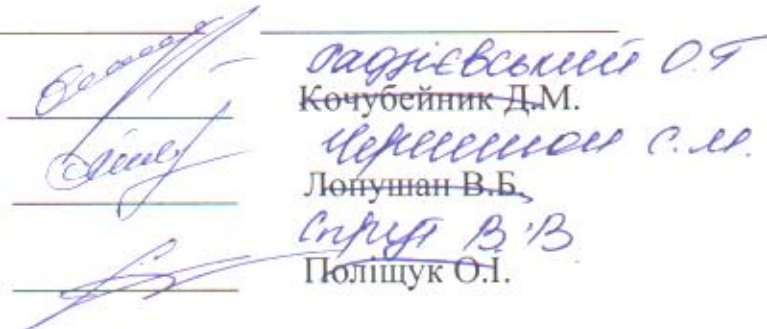 Радзієвський О.Г
Кочубейник Д.М.
С.М.
Лопушан В.Б.
Спрут В.В
Поліщук О.І.